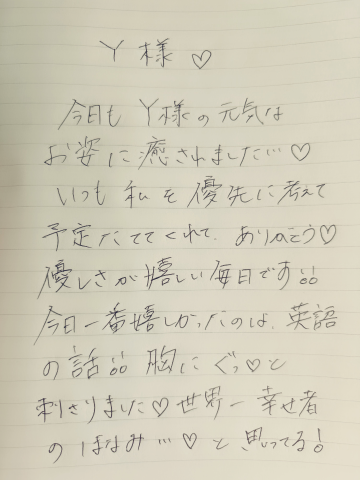 Y様♡
今日も Y様の元気な
お姿に癒されました…♡
いつも 私を優先に考えて
予定たててくれて、ありがとう♡
優しさが嬉しい毎日です
今日一番嬉しかったのは、英語
の話 胸にぐっ♡と
刺さりました♡世界一幸せ者
のはなみ…♡と思ってる!